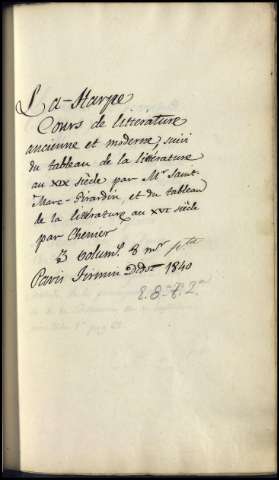 La-Harpe
Cours de littérature
ancienne et moderne, suivi
du tableau de la littérature
au XIX siècle par Mr Saint-
Marc-Girardin, et du tableau
de la littérature au XVI siècle
par Chenier
3 Volum.s 8 mr ptta
Paris Firmin Didot 1840